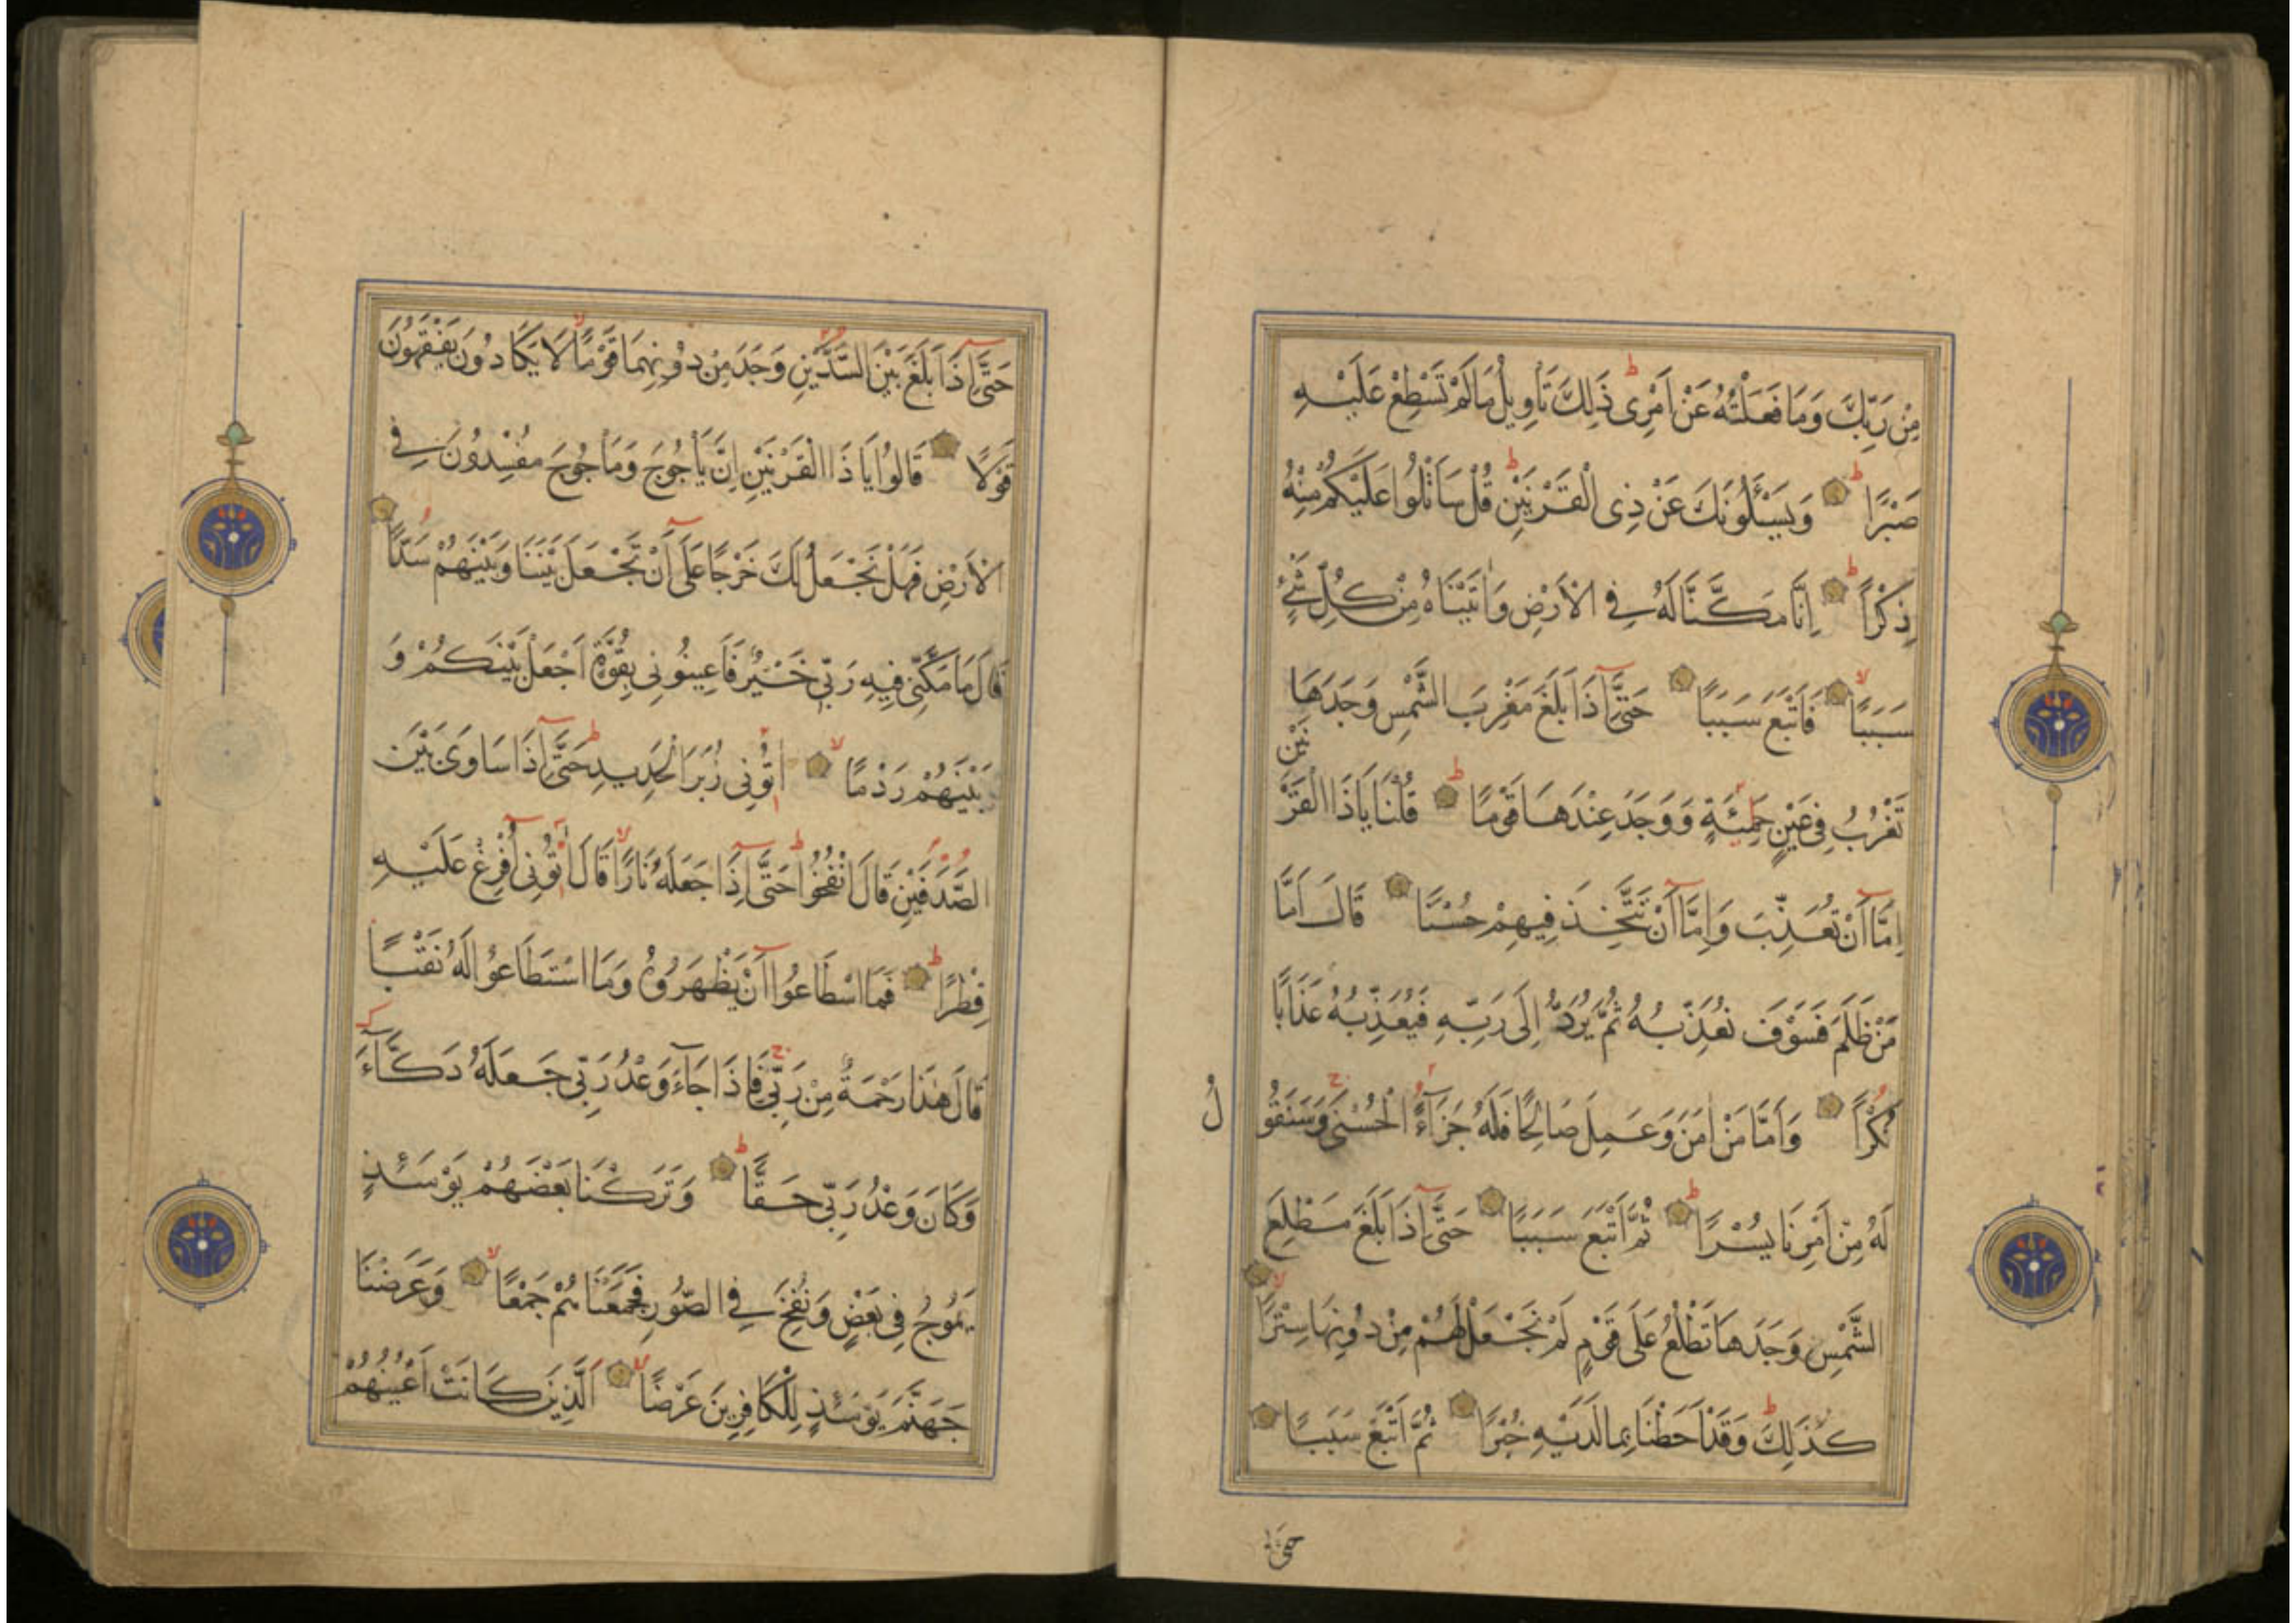 مِنْ رَبِّكَ وَمَا فَعَلْتُهُ عَنْ اَمْرِى ذٰلِكَ تَأْوِيلُ مَالَمْ تَسْطِعْ عَلَيْهِ
صَبْرًا وَيَسْـَٔلُونَكَ عَنْ ذِى الْقَرْنَيْنِ قُلْ سَاَتْلُوا عَلَيْكُمْ مِنْهُ
ذِكْرًا اِنَّا مَكَّنَّا لَهُ فِى الْاَرْضِ وَاٰتَيْنَاهُ مِنْ كُلِّ شَىْءٍ
سَبَبًا فَاَتْبَعَ سَبَبًا حَتّٰٓى اِذَا بَلَغَ مَغْرِبَ الشَّمْسِ وَجَدَهَا
تَغْرُبُ فِى عَيْنٍ حَمِئَةٍ وَوَجَدَ عِنْدَهَا قَوْمًا قُلْنَا يَاذَا الْقَرْنَيْنِ
اِمَّٓا اَنْ تُعَذِّبَ وَاِمَّٓا اَنْ تَتَّخِذَ فِيهِمْ حُسْنًا قَالَ اَمَّا
مَنْ ظَلَمَ فَسَوْفَ نُعَذِّبُهُ ثُمَّ يُرَدُّ اِلَى رَبِّهِ فَيُعَذِّبُهُ عَذَابًا
نُكْرًا وَاَمَّا مَنْ اٰمَنَ وَعَمِلَ صَالِحًا فَلَهُ جَزَآءً الْحُسْنَى وَسَنَقُولُ
لَهُ مِنْ اَمْرِنَا يُسْرًا ثُمَّ اَتْبَعَ سَبَبًا حَتّٰٓى اِذَا بَلَغَ مَطْلِعَ
الشَّمْسِ وَجَدَهَا تَطْلُعُ عَلَى قَوْمٍ لَمْ نَجْعَلْ لَهُمْ مِنْ دُونِهَا سِتْرًا
كَذٰلِكَ وَقَدْ اَحَطْنَا بِمَا لَدَيْهِ خُبْرًا ثُمَّ اَتْبَعَ سَبَبًا
حَتّٰى
حَتّٰٓى اِذَا بَلَغَ بَيْنَ السَّدَّيْنِ وَجَدَ مِنْ دُونِهِمَا قَوْمًا لَا يَكَادُونَ يَفْقَهُونَ
قَوْلًا قَالُوا يَاذَا الْقَرْنَيْنِ اِنَّ يَأْجُوجَ وَمَأْجُوجَ مُفْسِدُونَ فِى
الْاَرْضِ فَهَلْ نَجْعَلُ لَكَ خَرْجًا عَلَٓى اَنْ تَجْعَلَ بَيْنَنَا وَبَيْنَهُمْ سَدًّا
قَالَ مَا مَكَّنِّى فِيهِ رَبِّى خَيْرٌ فَاَعِينُونِى بِقُوَّةٍ اَجْعَلْ بَيْنَكُمْ وَ
بَيْنَهُمْ رَدْمًا اٰتُونِى زُبَرَ الْحَدِيدِ حَتّٰٓى اِذَا سَاوَى بَيْنَ
الصَّدَفَيْنِ قَالَ انْفُخُوا حَتّٰٓى اِذَا جَعَلَهُ نَارًا قَالَ اٰتُونِٓى اُفْرِغْ عَلَيْهِ
قِطْرًا فَمَا اسْطَاعُٓوا اَنْ يَظْهَرُوهُ وَمَا اسْتَطَاعُوا لَهُ نَقْبًا
قَالَ هٰذَا رَحْمَةٌ مِنْ رَبِّى فَاِذَا جَآءَ وَعْدُ رَبِّى جَعَلَهُ دَكَّآءَ
وَكَانَ وَعْدُ رَبِّى حَقًّا وَتَرَكْنَا بَعْضَهُمْ يَوْمَئِذٍ
يَمُوجُ فِى بَعْضٍ وَنُفِخَ فِى الصُّورِ فَجَمَعْنَاهُمْ جَمْعًا وَعَرَضْنَا
جَهَنَّمَ يَوْمَئِذٍ لِلْكَافِرِينَ عَرْضًا اَلَّذِينَ كَانَتْ اَعْيُنُهُمْ